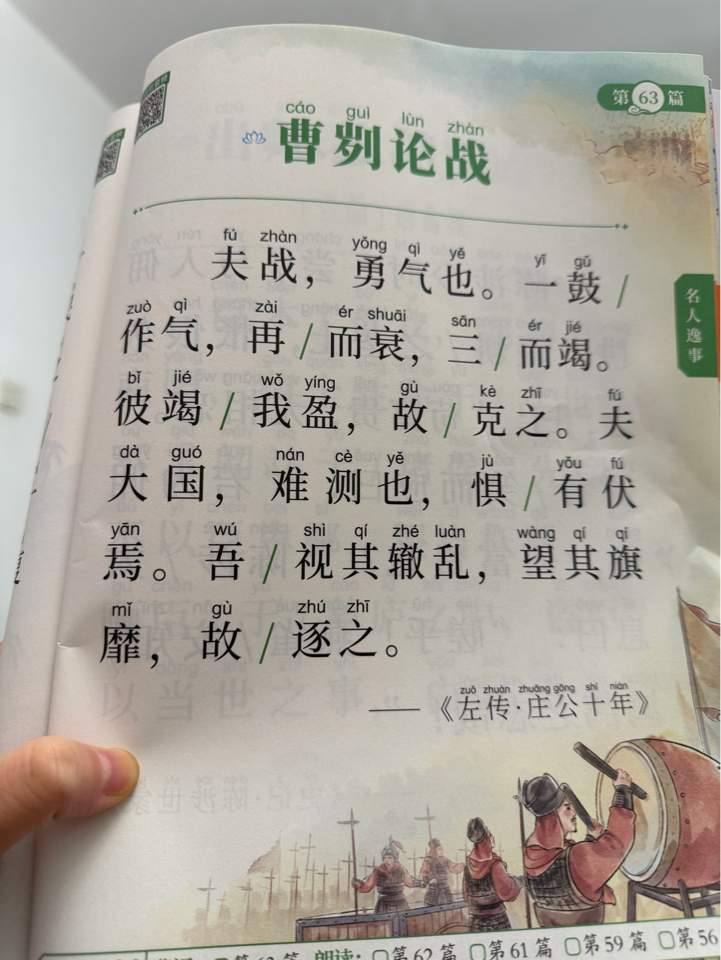 第63篇
cáo guì lùn zhàn
曹刿论战
名人逸事
fú zhàn yǒng qì yě yī gǔ
夫战，勇气也。一鼓/
zuò qì zài ér shuāi sān ér jié
作气，再/而衰，三/而竭。
bǐ jié wǒ yíng gù kè zhī fú
彼竭/我盈，故/克之。夫
dà guó nán cè yě jù yǒu fú
大国，难测也，惧/有伏
yān wú shì qí zhé luàn wàng qí qí
焉。吾/视其辙乱，望其旗
mǐ gù zhú zhī
靡，故/逐之。
zuǒ zhuàn zhuāng gōng shí nián
——《左传·庄公十年》
朗读：第62篇 第61篇 第59篇 第56